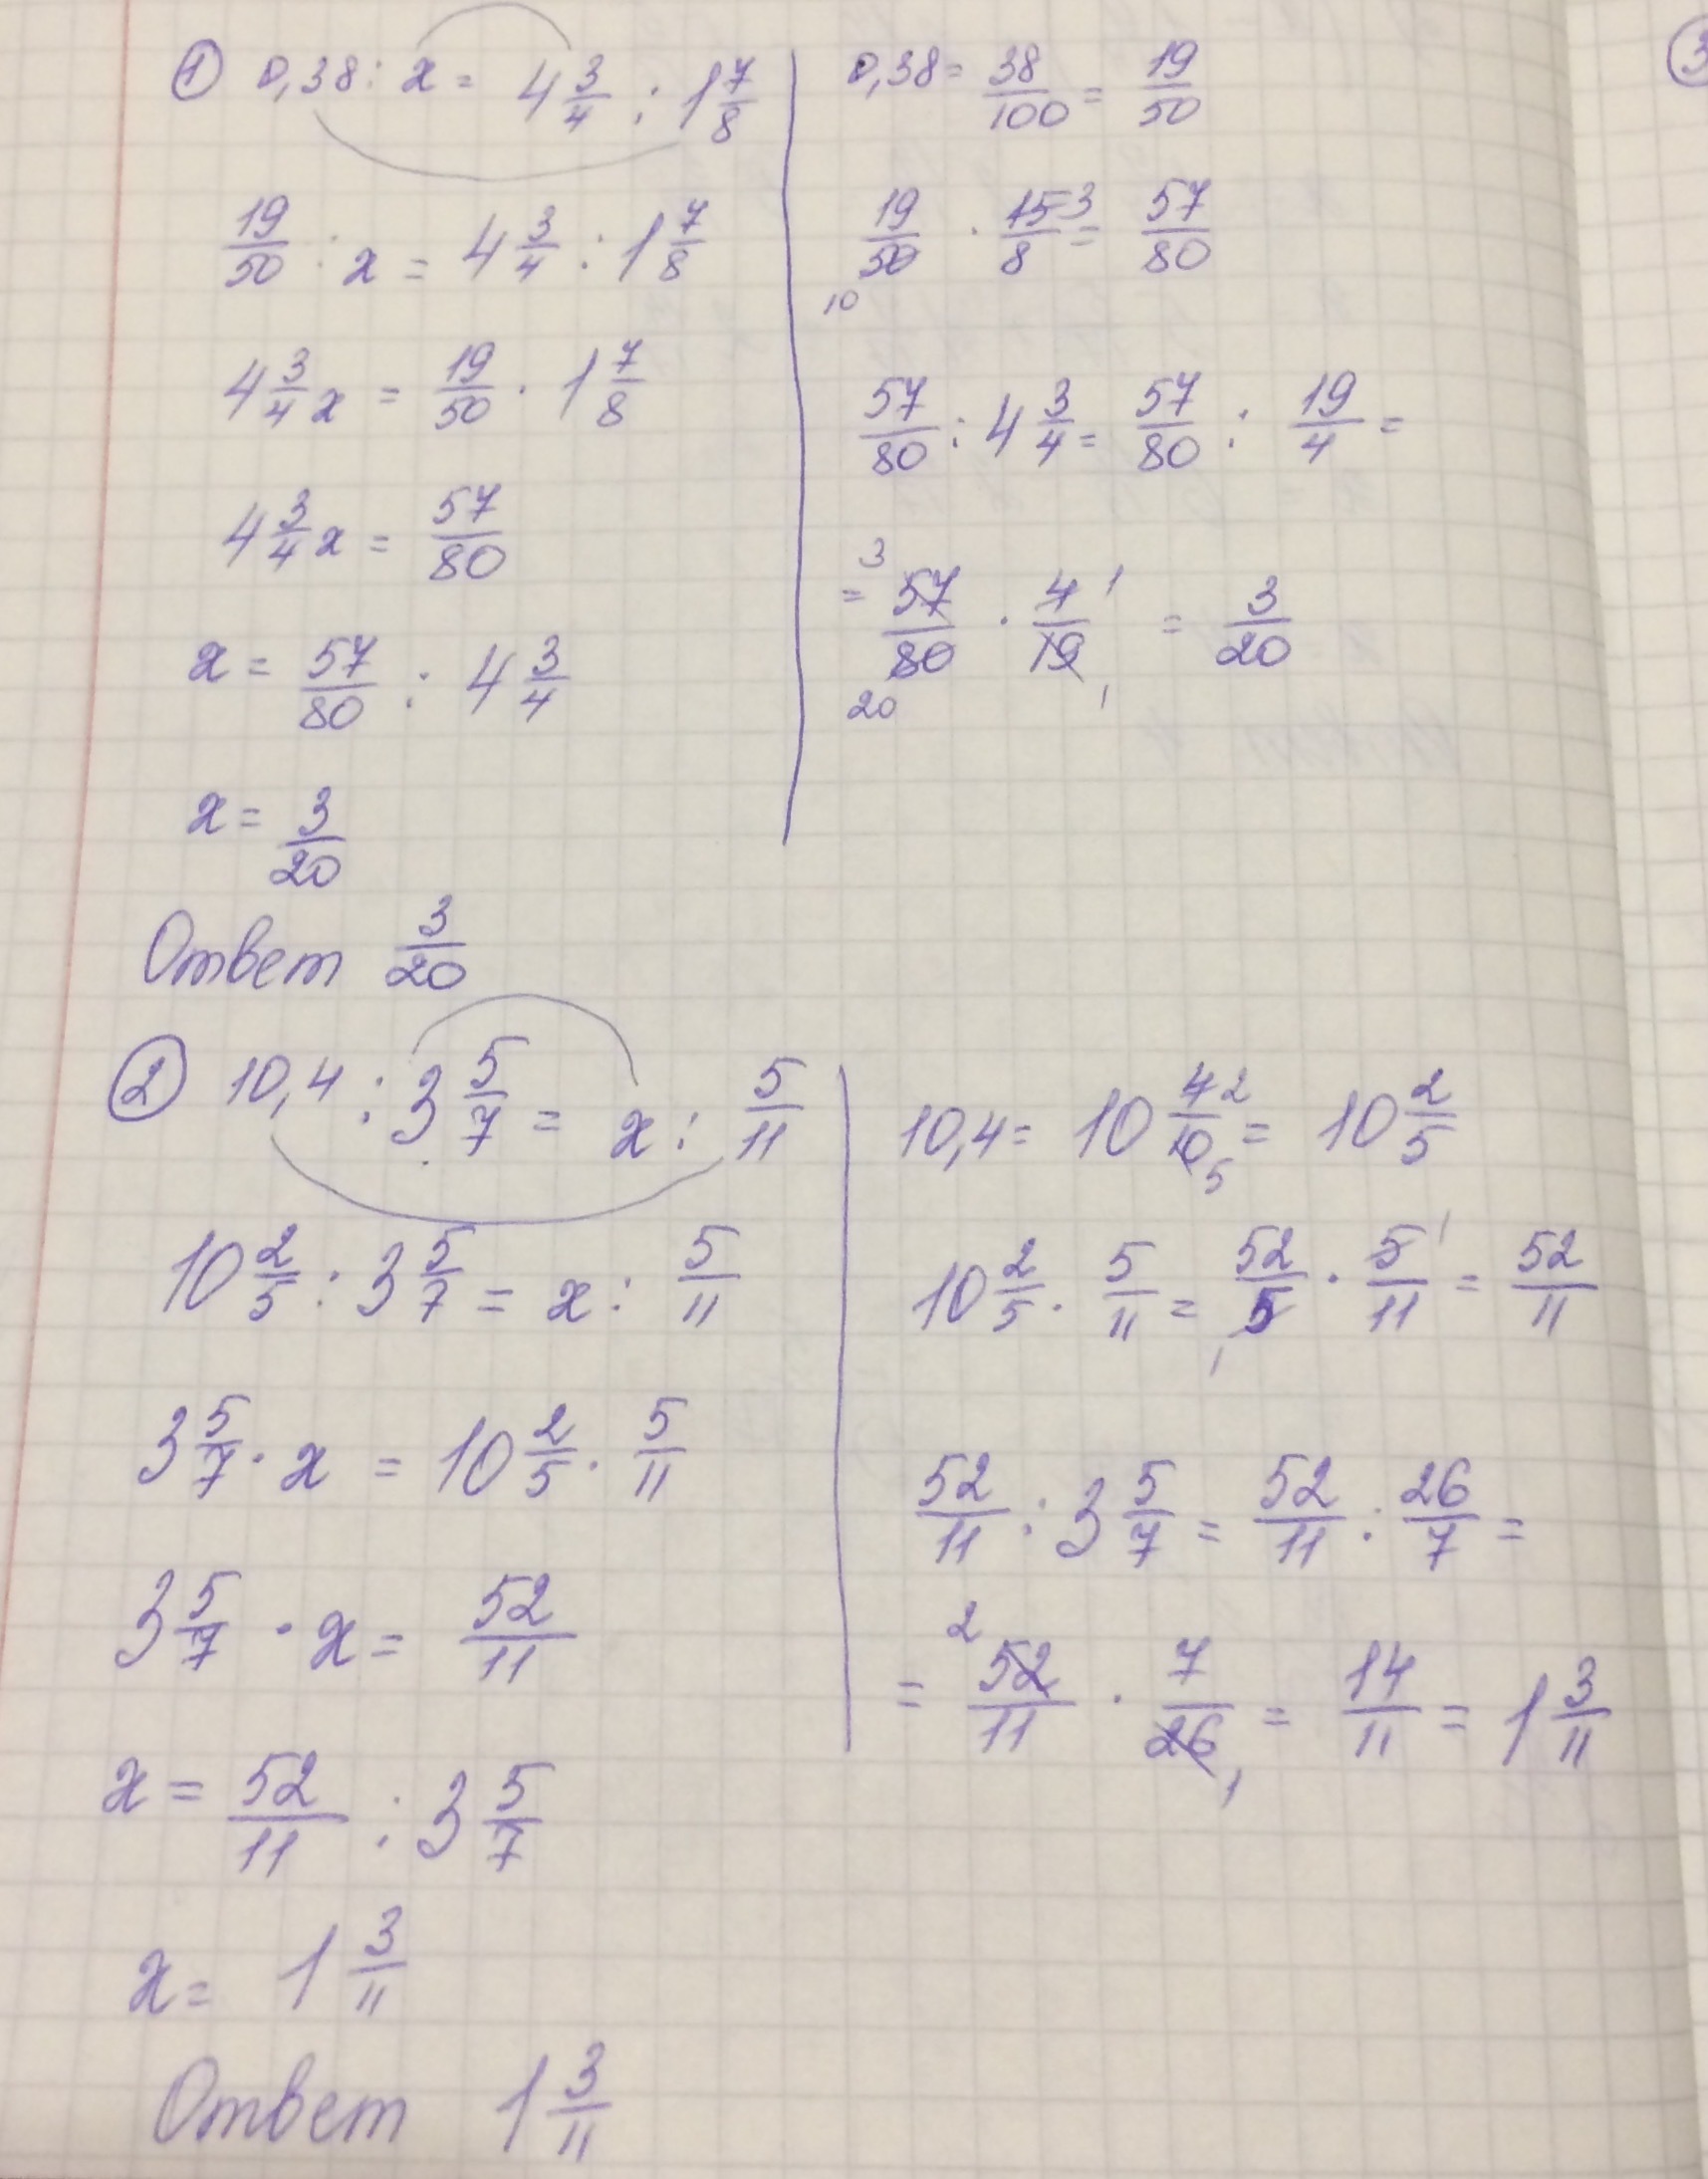 ① 0,38 : x = 4 3/4 : 1 7/8
19/50 : x = 4 3/4 : 1 7/8
4 3/4 x = 19/50 · 1 7/8
4 3/4 x = 57/80
x = 57/80 : 4 3/4
x = 3/20
Ответ 3/20
0,38 = 38/100 = 19/50
19/50 10 · 15/8 3 = 57/80
57/80 : 4 3/4 = 57/80 : 19/4 =
= 3 57/80 20 · 4/19 1 1 = 3/20
② 10,4 : 3 5/7 = x : 5/11
10 2/5 : 3 5/7 = x : 5/11
3 5/7 · x = 10 2/5 · 5/11
3 5/7 · x = 52/11
x = 52/11 : 3 5/7
x = 1 3/11
Ответ 1 3/11
10,4 = 10 4/10 2 5 = 10 2/5
10 2/5 · 5/11 = 52/5 1 · 5/11 1 = 52/11
52/11 : 3 5/7 = 52/11 : 26/7 =
= 2 52/11 · 7/26 1 = 14/11 = 1 3/11
③